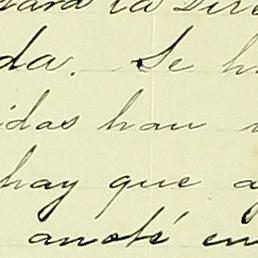 para la Dire
da. Se h
idas han
hay que a
anoté en